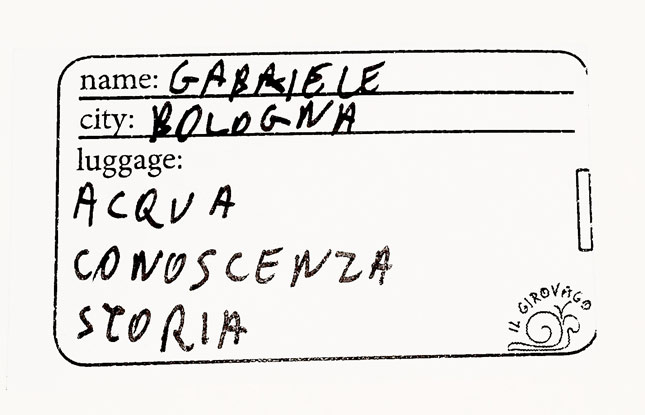 name: GABRIELE
city: BOLOGNA
luggage:
ACQUA
CONOSCENZA
STORIA
IL GIROVAGO